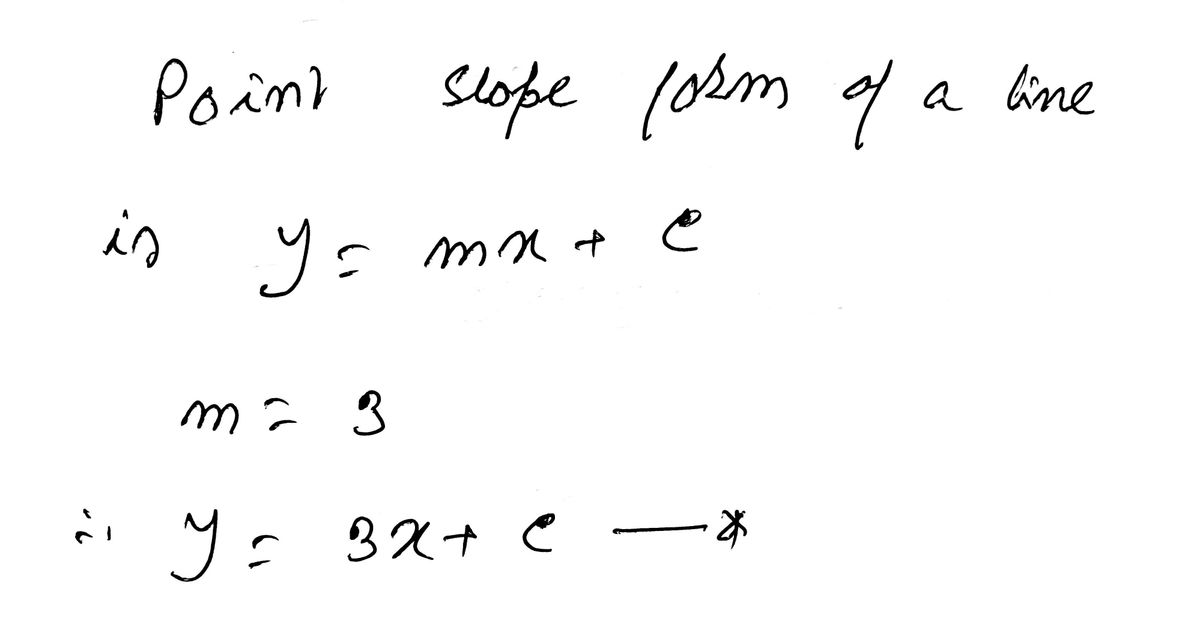 Point slope form of a line
is y = mx + c
m = 3
∴ y = 3x + c —*